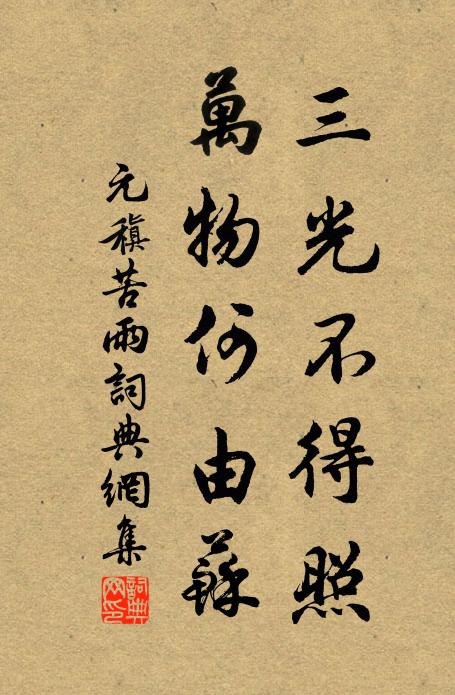 三光不得照
萬物何由蘇
元稹苦雨詞典網集
詞典
网印